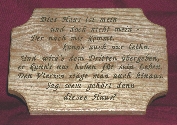 Dies Haus ist mein
und doch nicht mein
Der nach mir kommt
kann's auch nur leihn.
Und wird's dem Dritten übergeben,
er kann's nur haben für sein Leben.
Den Vierten trägt man auch hinaus
Sag, wem gehört denn
dieses Haus?